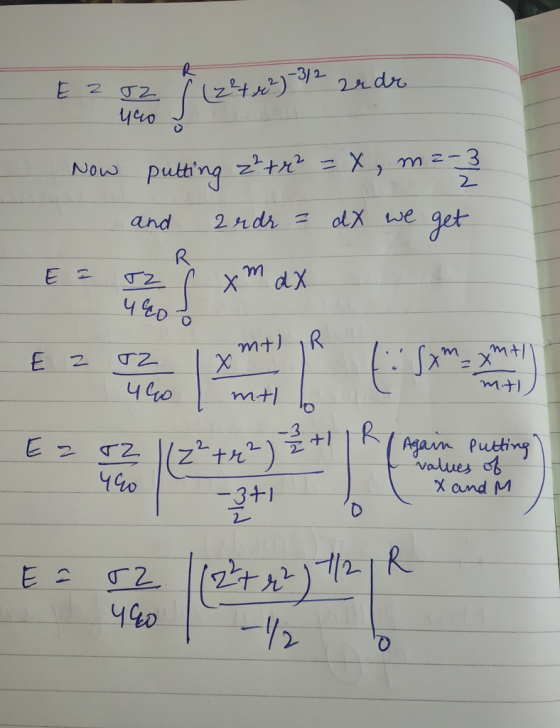 E = σz/4ε0 ∫₀ᴿ (z²+r²)^-3/2 2rdr
Now putting z²+r² = X, m = -3/2
and 2rdr = dX we get
E = σz/4ε0 ∫₀ᴿ X^m dX
E = σz/4ε0 | X^m+1 / m+1 |₀ᴿ (∵ ∫X^m = X^m+1 / m+1)
E = σz/4ε0 | (z²+r²)^-3/2+1 / -3/2+1 |₀ᴿ (Again putting values of X and M)
E = σz/4ε0 | (z²+r²)^-1/2 / -1/2 |₀ᴿ